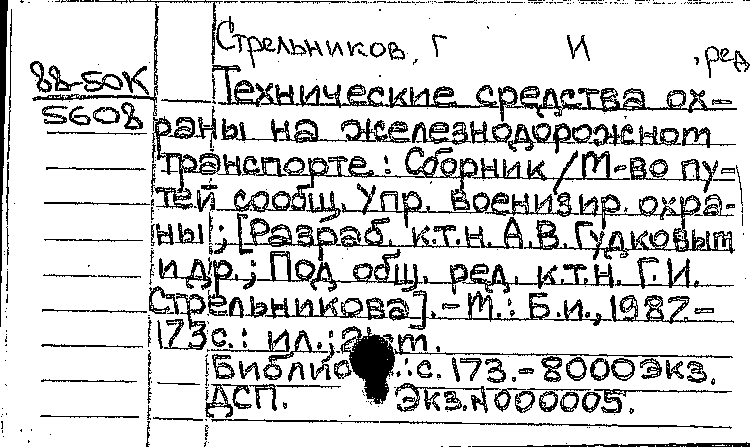 Стрельников, Г И , ред
88-50К
5608
Технические средства ох-
раны на железнодорожном
транспорте : Сборник / М-во пу-
тей сообщ. Упр. военизир. охра-
ны ; [Разраб. к.т.н. А.В. Гудковым
и др. ; Под общ. ред. к.т.н. Г.И.
Стрельникова]. - М. : Б.и., 1987. -
173с. : ил. ;
с. 173. - 8000 экз.
ДСП. Экз. N000005.